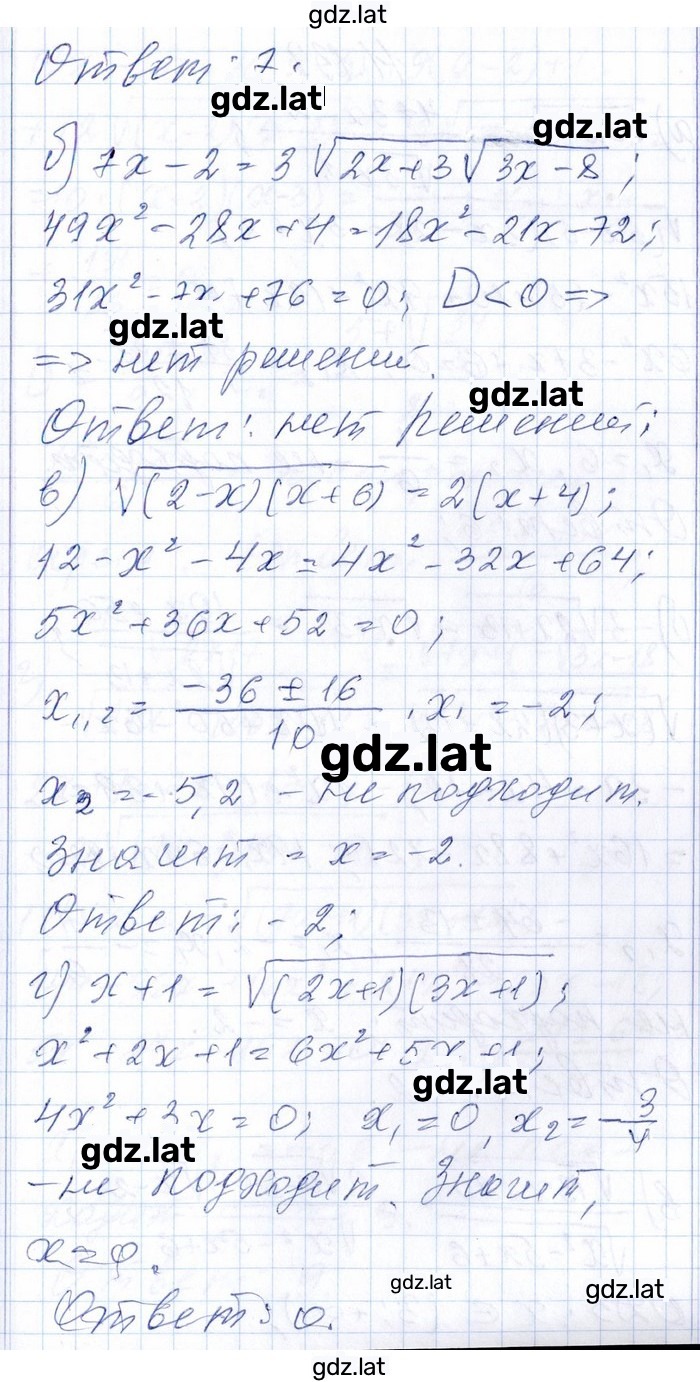 gdz.lat
Ответ: 7.
gdz.lat
gdz.lat
б) 7x - 2 = 3 √2x+3 √3x-8;
49x² - 28x + 4 = 18x² - 21x - 72;
31x² - 7x + 76 = 0; D < 0 =>
gdz.lat
=> нет решений.
gdz.lat
Ответ: нет решений;
в) √(2-x)(x+6) = 2(x+4);
12 - x² - 4x = 4x² - 32x + 64;
5x² + 36x + 52 = 0;
x₁,₂ = (-36 ± 16)/10, x₁ = -2;
gdz.lat
x₂ = -5,2 - не подходит.
Значит = x = -2.
Ответ: -2;
г) x + 1 = √(2x+1)(3x+1);
x² + 2x + 1 = 6x² + 5x + 1;
gdz.lat
4x² + 3x = 0; x₁ = 0, x₂ = -3/4
gdz.lat
- не подходит. Значит,
x = 0.
gdz.lat
gdz.lat
Ответ: 0.
gdz.lat